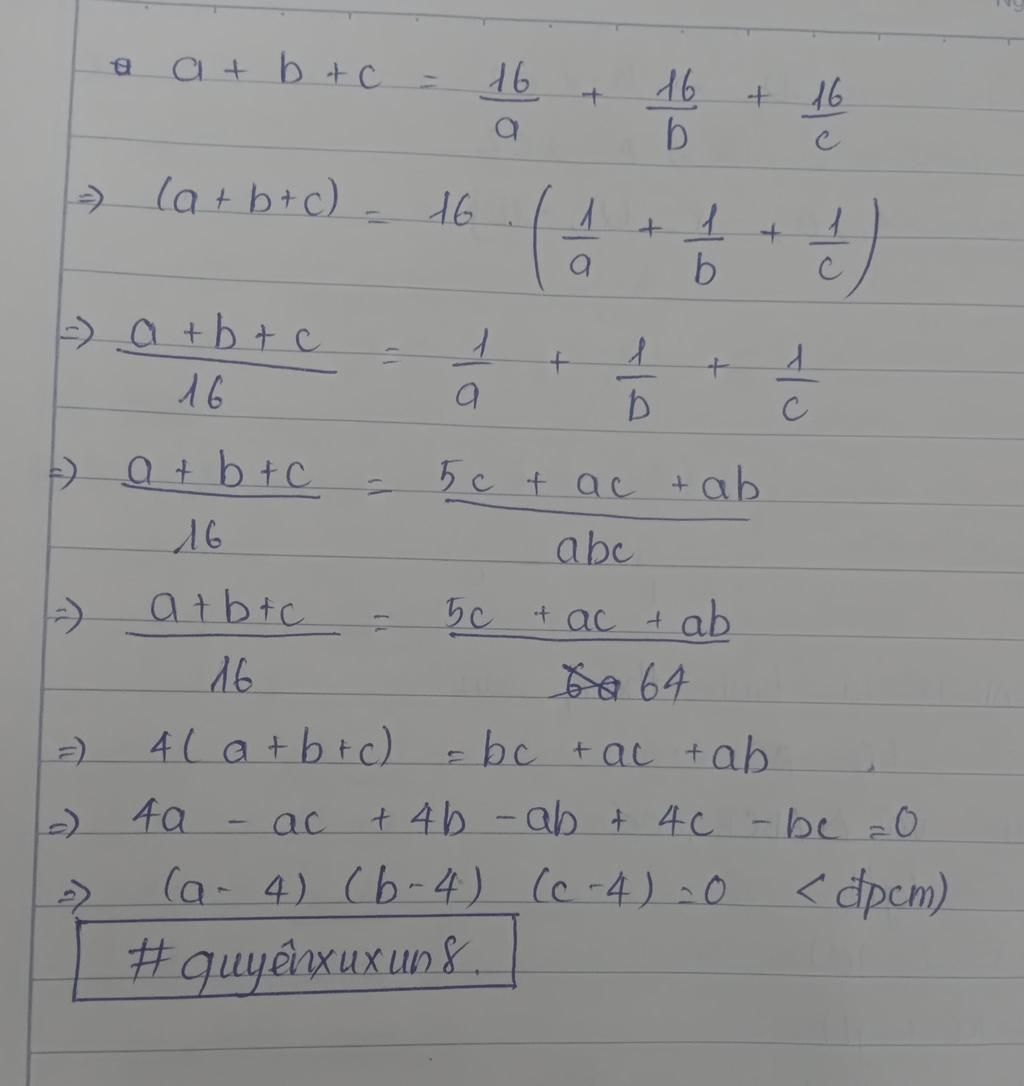 a + b + c = 16/a + 16/b + 16/c
=> (a + b + c) = 16 . (1/a + 1/b + 1/c)
=> a + b + c / 16 = 1/a + 1/b + 1/c
=> a + b + c / 16 = 5c + ac + ab / abc
=> a + b + c / 16 = 5c + ac + ab / 64
=> 4( a + b + c) = bc + ac + ab
=> 4a - ac + 4b - ab + 4c - bc = 0
=> (a - 4) (b - 4) (c - 4) = 0 < đpcm)
#quyênxuxun8.